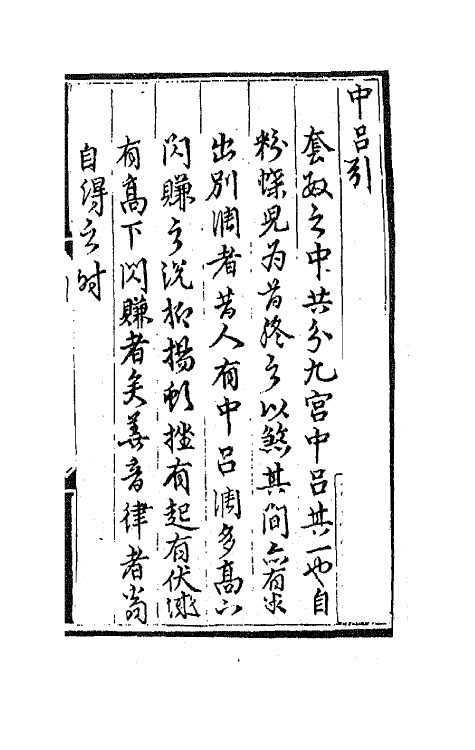 中呂引
套数之中共分九宫中呂其一也自
粉蝶児为首終之以煞其間亦有
出别调者昔人有中呂调多高下
閃賺之说抑揚頓挫有起有伏
有高下閃賺者矣善音律者當
自得之时